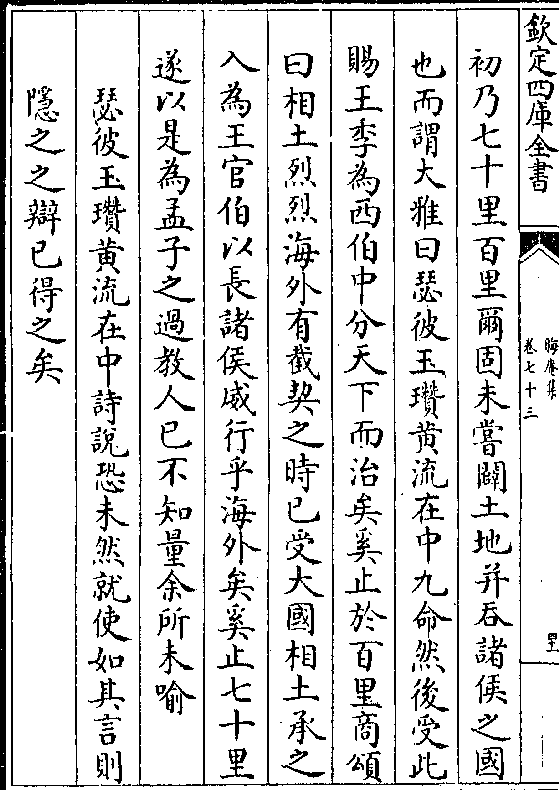 欽定四庫全書
晦庵集
卷七十三
里
初乃七十里百里爾固未嘗闢土地并吞諸侯之國
也而謂大雅曰瑟彼玉瓚黄流在中九命然後受此
賜王季為西伯中分天下而治矣奚止於百里商頌
曰相土烈烈海外有截契之時已受大國相土承之
入為王官伯以長諸侯威行乎海外矣奚止七十里
遂以是為孟子之過教人已不知量余所未喻
瑟彼玉瓚黄流在中詩説恐未然就使如其言則
隱之之辯已得之矣